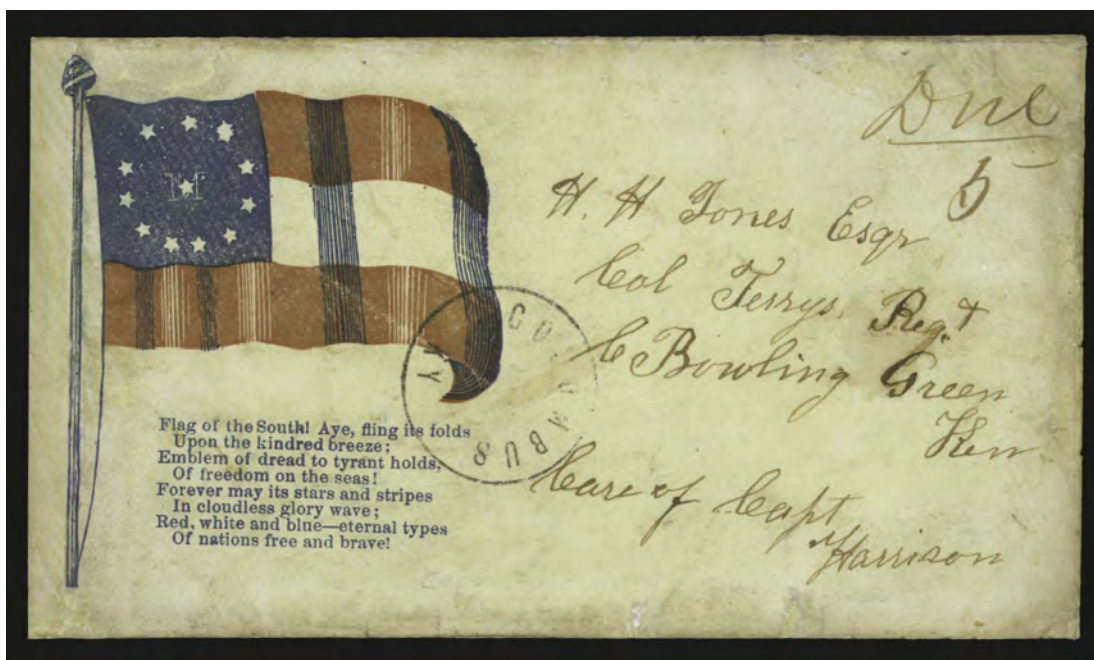 M
Flag of the South! Aye, fling its folds
Upon the kindred breeze;
Emblem of dread to tyrant holds,
Of freedom on the seas!
Forever may its stars and stripes
In cloudless glory wave;
Red, white and blue—eternal types
Of nations free and brave!
COLUMBUS
KY
Due
5
H. H Jones Esqr
Col Terrys. Regt
Bowling Green
Ken
Care of Capt
Harrison